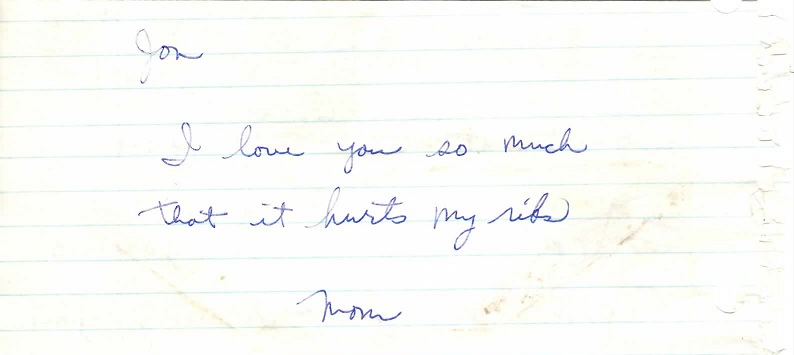 Jon
I love you so much
that it hurts my ribs
Mom